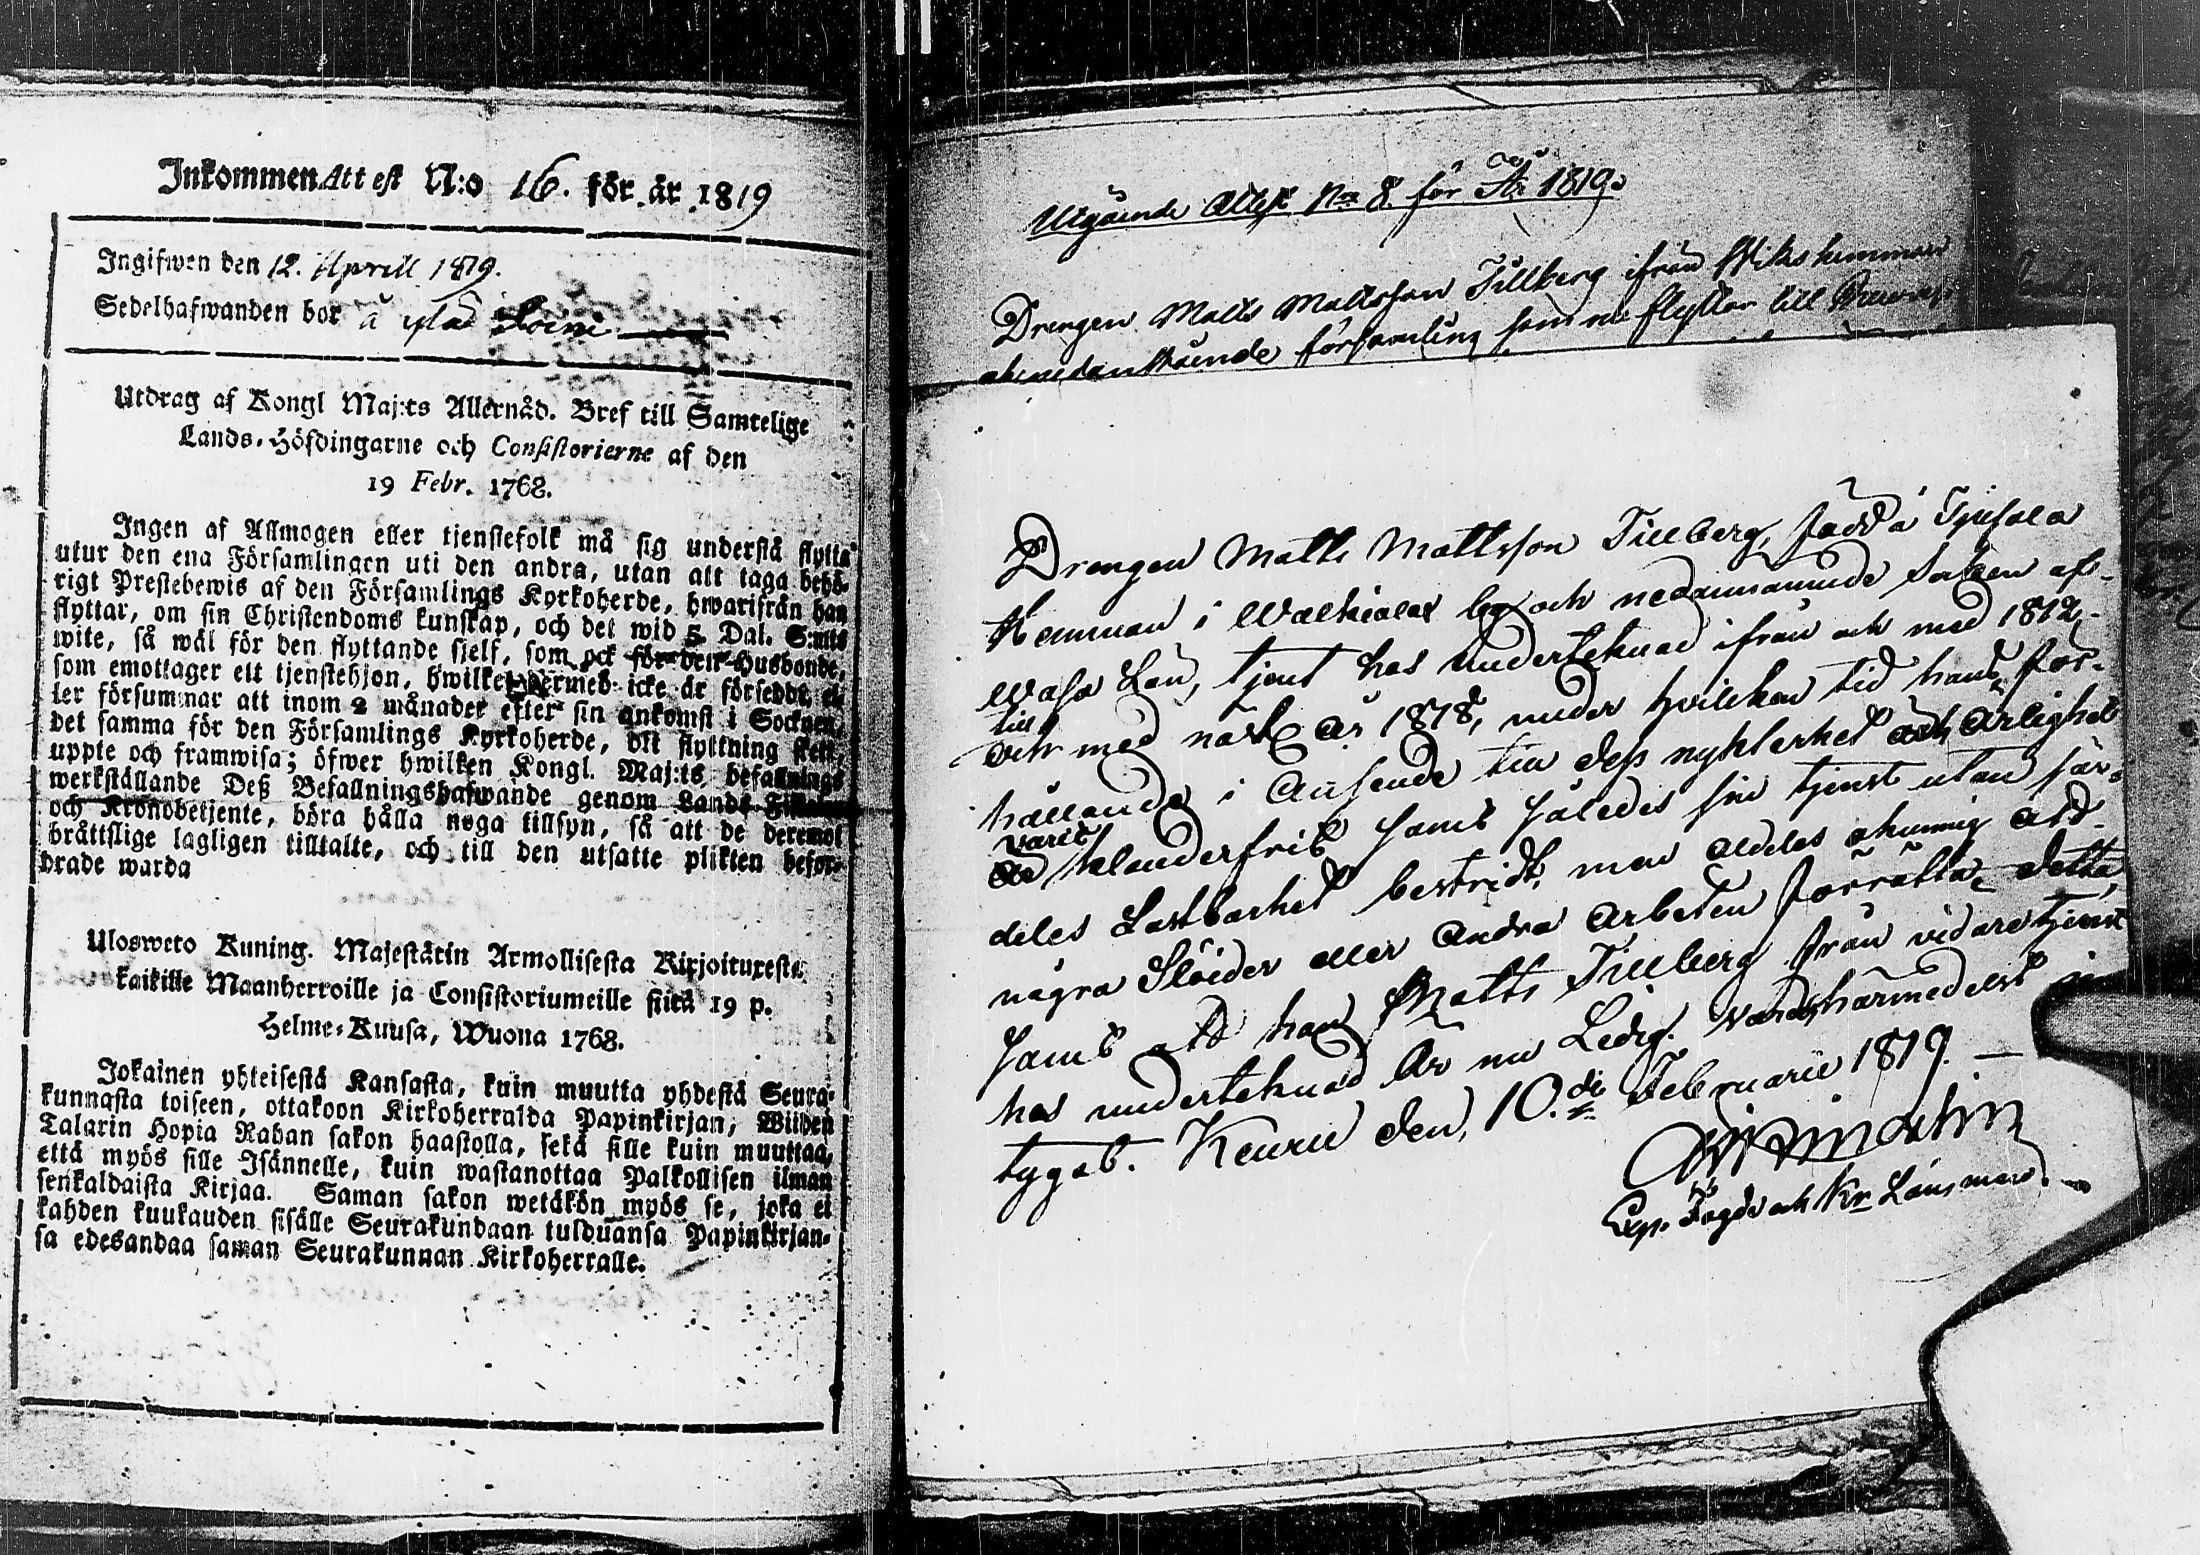 Inkommen Attest N:o 16. för år 1819
Ingifwen den 12. Aprill 1819.
Sedelhafwanden bor å Loini
Utdrag af Kongl Maj:ts Allernåd. Bref till Samtelige
Lands-Höfdingarne och Consistorierne af den
19 Febr. 1768.
Ingen af Allmogen eller tjenstefolk må sig understå flytta
utur den ena Församlingen uti den andra, utan att taga behö-
rigt Prestebewis af den Församlings Kyrkoherde, hwarifrån han
flyttar, om sin Christendoms kunskap, och det wid 5 Dal. S:mts
wite, så wäl för den flyttande sjelf, som ock för den Husbonde,
som emottager ett tjenstehjon, hwilket härmed icke är försedt, el-
ler försummar att inom 2 månader efter sin ankomst i Socknen,
det samma för den Församlings Kyrkoherde, dit flyttning skett,
uppte och framwisa; öfwer hwilken Kongl. Maj:ts befallnings
werkställande Deß Befallningshafwande genom Lands-Fiskaler
och Kronobetjente, böra hålla noga tillsyn, så att de deremot
bråttslige lagligen tilltalte, och till den utsatte plikten befor-
drade warda
Ulosweto Kuning. Majestätin Armollisesta Kirjoituxesta
kaikille Maanherroille ja Consistoriumeille siitä 19 p.
Helme-Kuusa, Wuona 1768.
Jokainen yhteisestä Kansasta, kuin muutta yhdestä Seura-
kunnasta toiseen, ottakoon Kirkoherralda Papinkirjan, Wiiden
Talarin Hopia Rahan sakon haastolla, sekä sille kuin muuttaa,
että myös sille Isännelle, kuin wastanottaa Palkollisen ilman
senkaldaista Kirjaa. Saman sakon wetäkön myös se, joka ei
kahden kuukauden sisälle Seurakundaan tulduansa Papinkirjan-
sa edesandaa saman Seurakunnan Kirkoherralle.
Utgående Attest No 8 för År 1819.
Drengen Matts Mattsson Tillberg ifrån hemman
församling som nu flyttar till
Drengen Matts Mattsson Tillberg, född å
Hemman i Walkiala by och nedannämnde Socken af
Wasa Län, tjent hos underteknad ifrån och med 1812,
till
och med näst År 1818, under hvilken tid hans för-
hållande i Anseende till dess nykterhet och Ärlighet
varit
klanderfrit samt således sin tjenst utan sär-
deles Lastbarhet bestridt, men aldeles okunnig att
några Slöider eller Andra Arbeten förrätta. Detta
samt att han Matts Tillberg från vidare tjenst
hos undertecknad Är nu Ledig. varder härmedelst in
tygat. Keuru den, 10.de Februarii 1819.
Exp. Fogde och Kr Länsman.